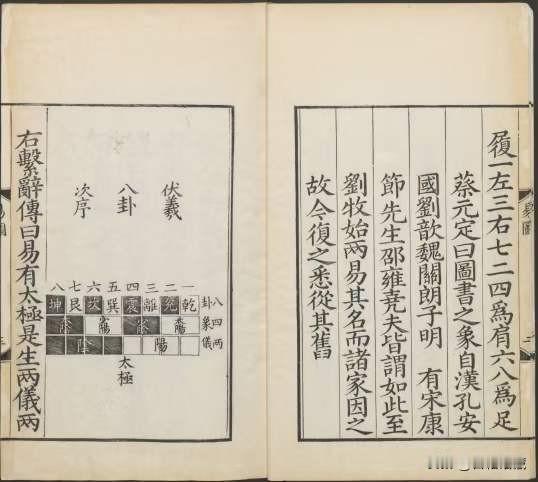 履一左三右七二四爲肩六八爲足
蔡元定曰圖書之象自漢孔安
國劉歆魏關朗子明 有宋康
節先生邵雍堯夫皆謂如此至
劉牧始兩易其名而諸家因之
故今復之悉從其舊
易圖
二
伏羲
八卦
次序
一 二 三 四 五 六 七 八
乾 兌 離 震 巽 坎 艮 坤 八卦
太陽 少陰 少陽 太陰 四象
陽 陰 兩儀
太極
右繫辭傳曰易有太極是生兩儀兩